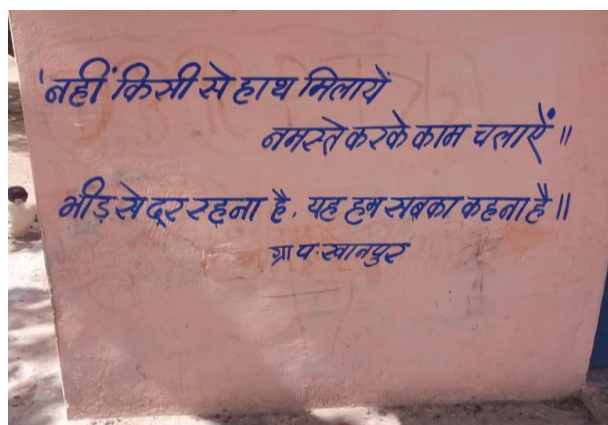 'नहीं किसी से हाथ मिलायें
नमस्ते करके काम चलाऐं ॥
भीड़ से दूर रहना है, यह हम सबका कहना है ॥
ग्रा प. खानपुर